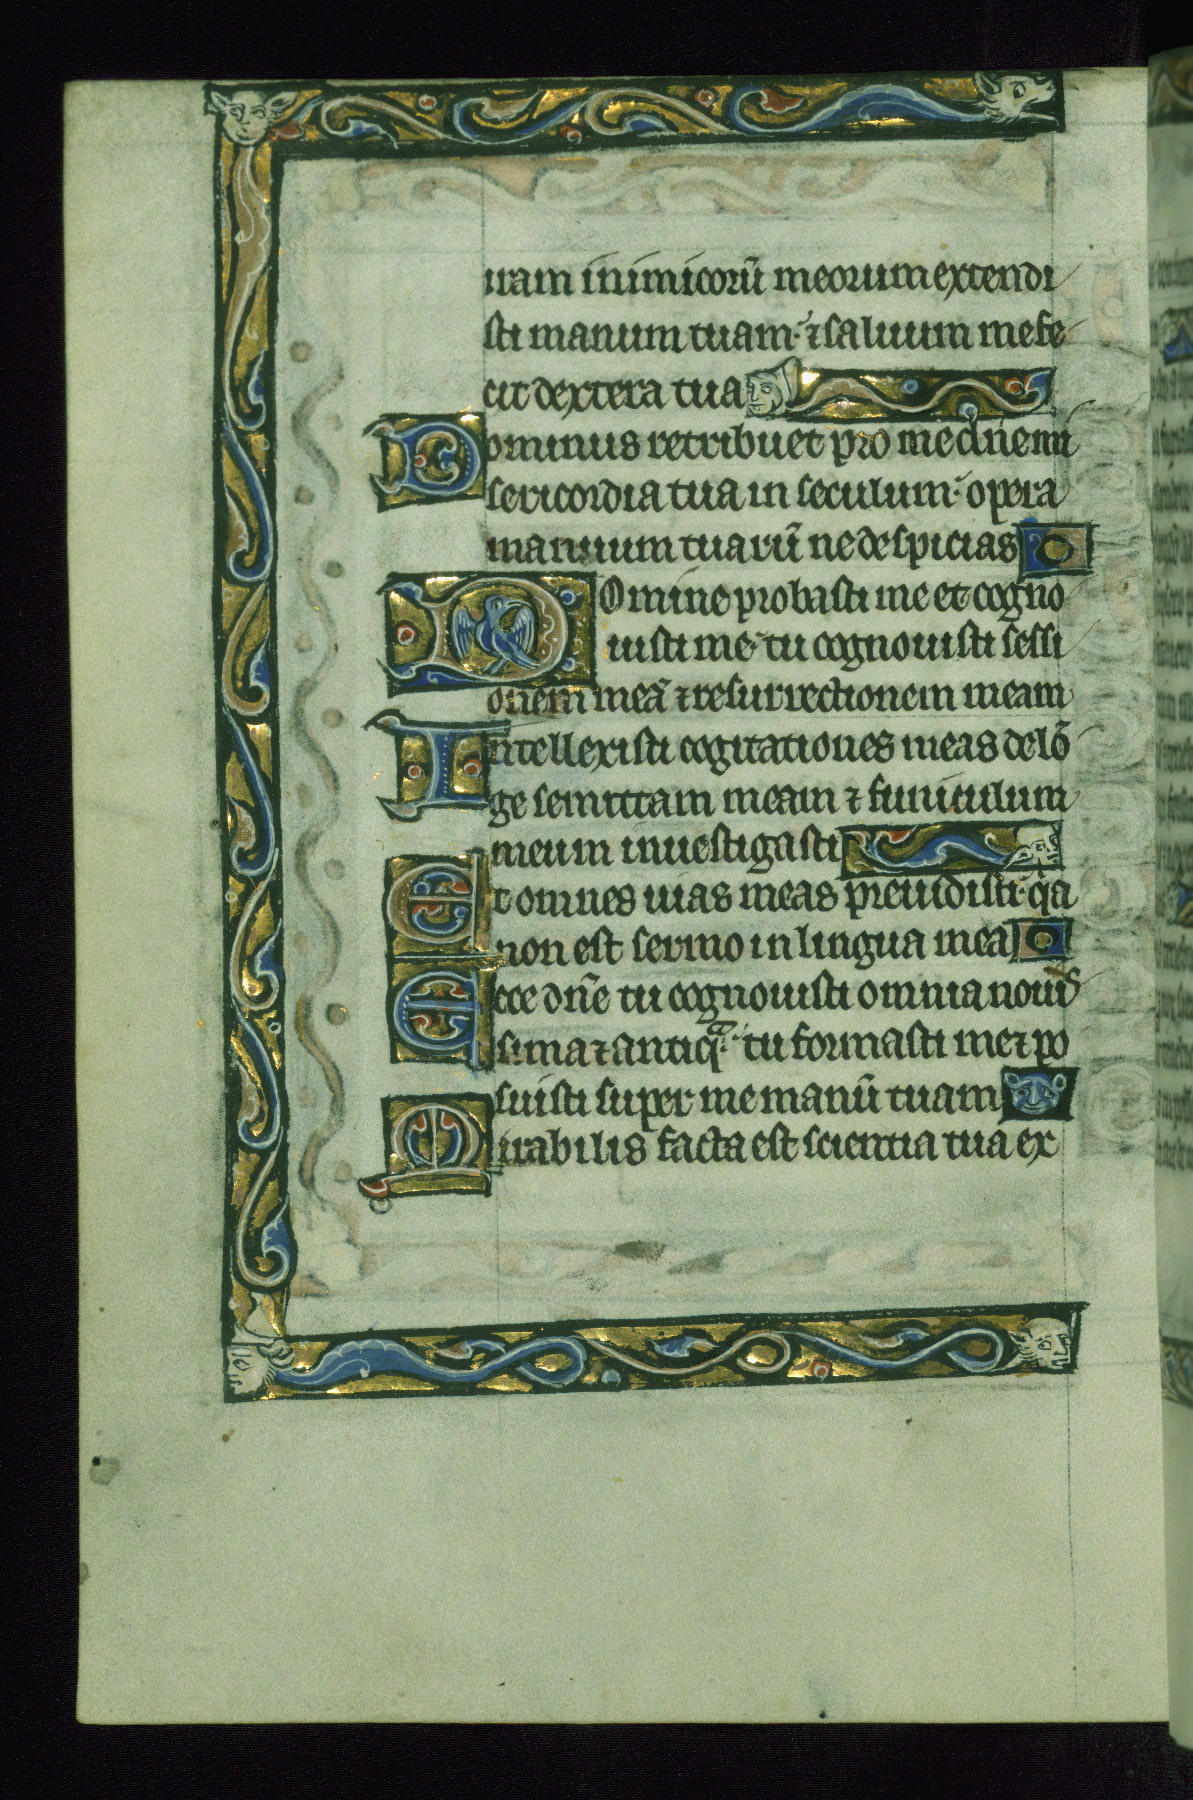 iram inimicorū meorum extendi
sti manum tuam· ⁊ saluum me fe
cit dextera tua
Dominus retribuet pro me dn̄e mi
sericordia tua in seculum· opera
manuum tuarū ne despicias
Domine probasti me et cogno
uisti me· tu cognouisti sessi
onem meā ⁊ resurrectionem meam
Intellexisti cogitationes meas de lō
ge semitam meam ⁊ funiculum
meum inuestigasti
Et omnes uias meas preuidisti· q̄a
non est sermo in lingua mea
Ecce dn̄e tu cognouisti omnia noui
sima ⁊ antiqᵃ· tu formasti me ⁊ po
suisti super me manū tuam
Mirabilis facta est scientia tua ex